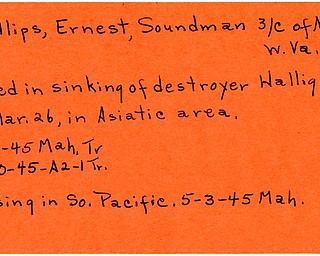 llips, Ernest, Soundman 3/c of N
W. Va.
ed in sinking of destroyer Hallig
Mar. 26, in Asiatic area.
-45 Mah, Tr
0-45-A2-1 Tr.
sing in So. Pacific. 5-3-45 Mah.